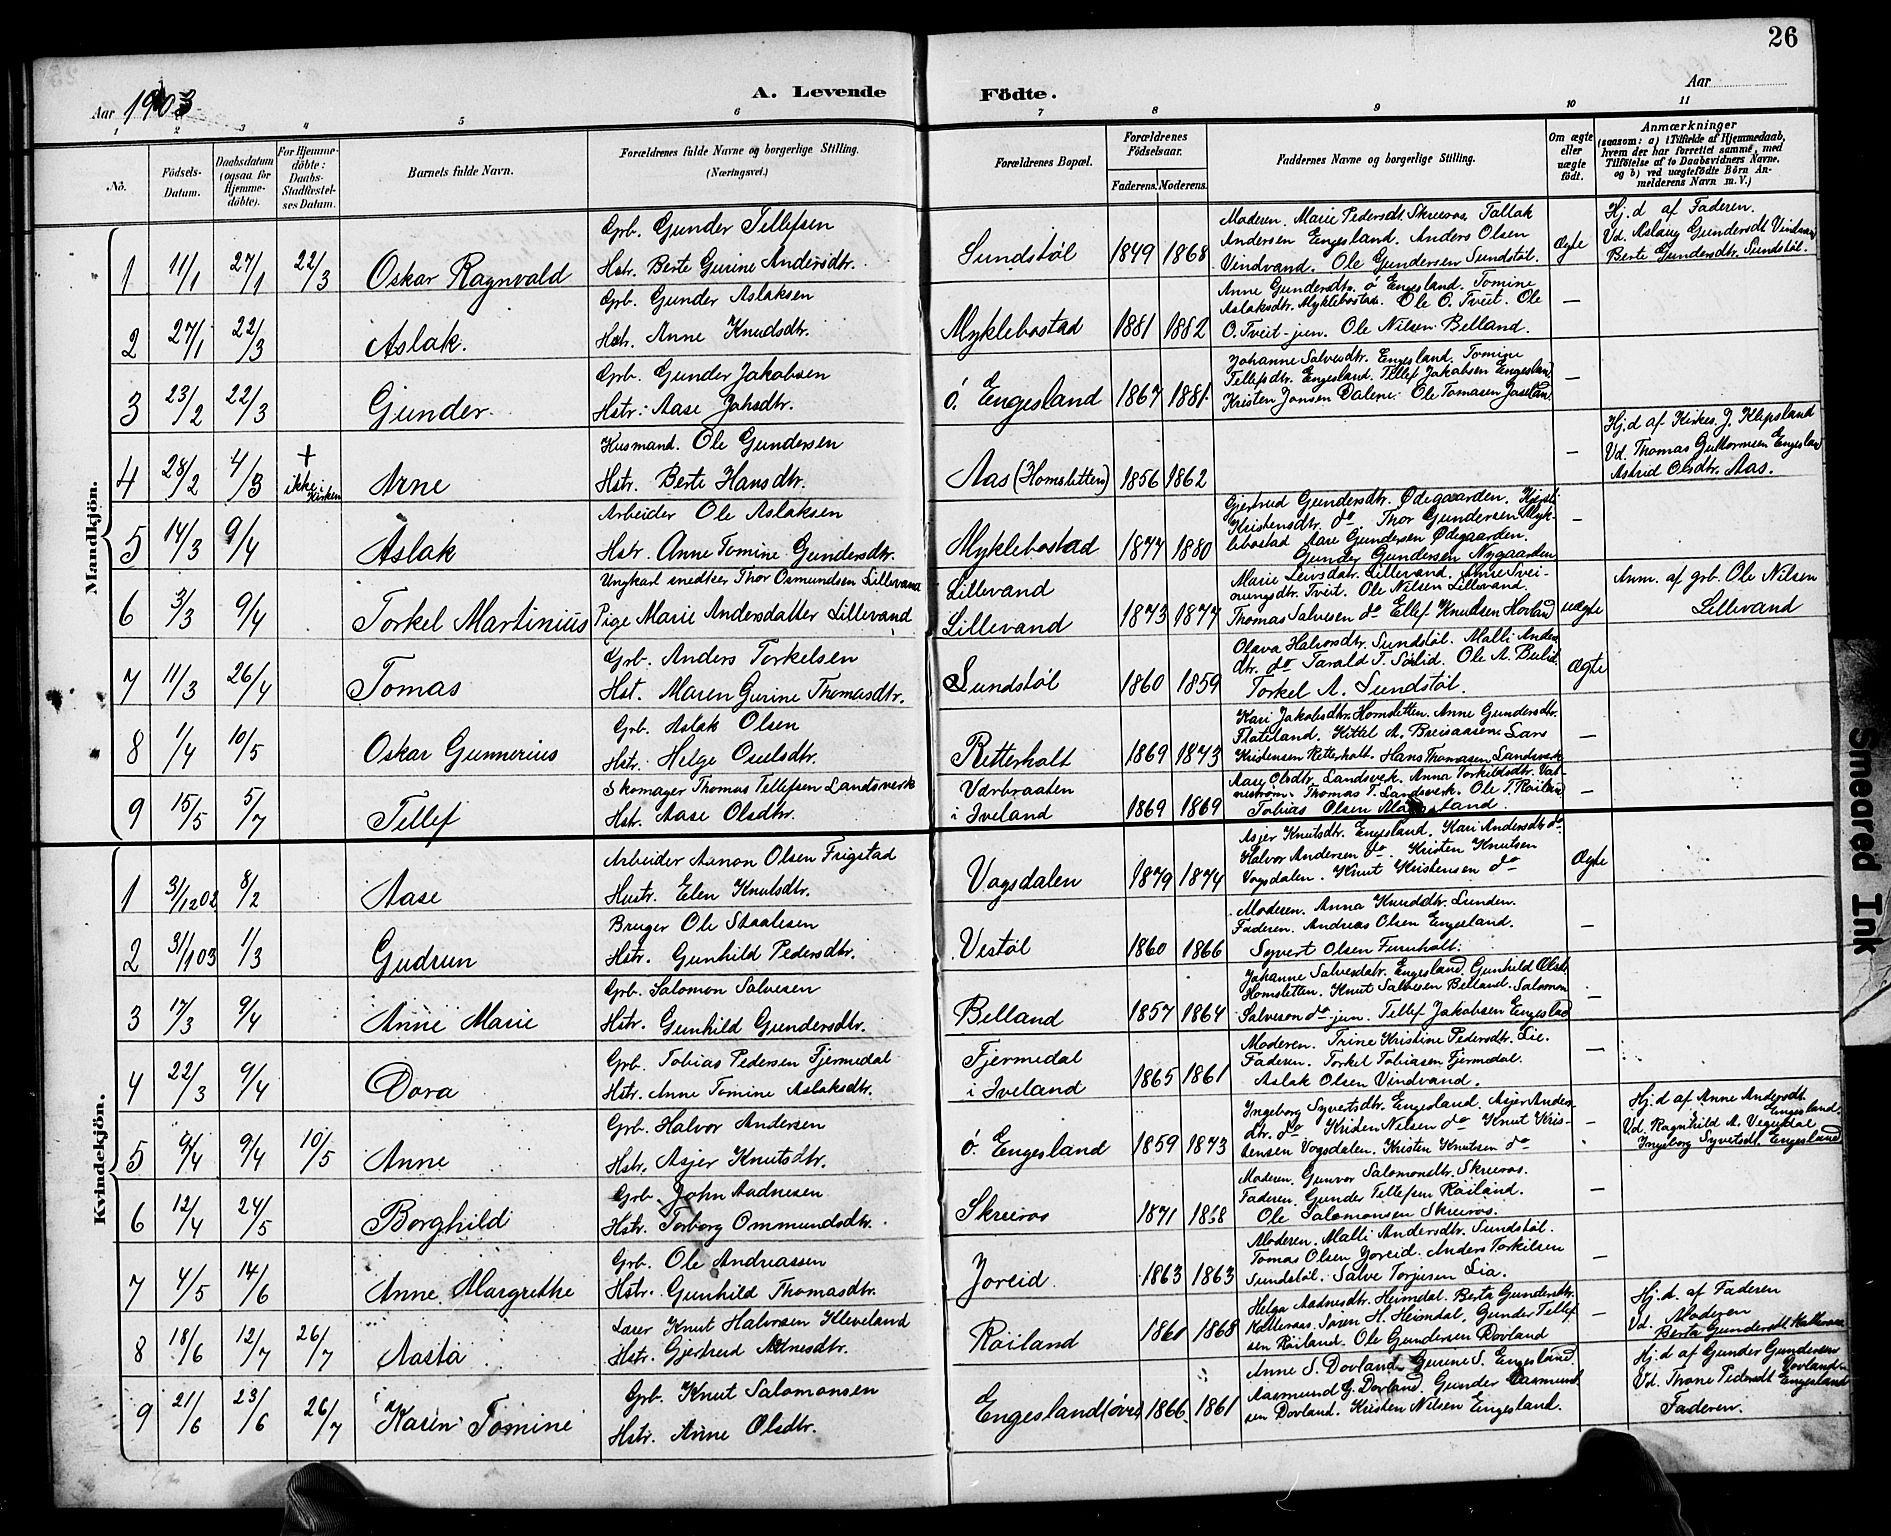 26
Aar 1903
A. Levende Födte.
Aar
1 2 3 4 5 6 7 8 9 10 11
No.
Födsels-Datum.
Daabsdatum (ogsaa for Hjemme-döbte).
For Hjemme-döbte: Daabs-Stadfæstel-ses Datum.
Barnets fulde Navn.
Forældrenes fulde Navne og borgerlige Stilling. (Næringsvei.)
Forældrenes Bopæl.
Forældrenes Födselsaar.
Faderens. Moderens.
Faddernes Navne og borgerlige Stilling.
Om ægte eller uægte födt.
Anmærkninger
(saasom: a) i Tilfælde af Hjemmedaab,
hvem der har forrettet samme, med
Tilföielse af to Daabsvidners Navne,
og b) ved uægtefödte Börn An-
melderens Navn m. V.)
Mandkjön.
1 11/1 27/1 22/3 Oskar Ragnvald
Grb. Gunder Tellefsen
Hstr. Berte Gurine Andersdtr.
Sundstöl 1849 1868
Moderen. Marie Pedersdt. Skreros. Tallak
Andersen Engesland. Anders Olsen
Vindvand. Ole Gundersen Sundstöl.
Ægte
Hj.d af Faderen.
Vd. Aslaug Gundersdt Vindvand
Berte Gundersdtr. Sundstöl.
2 27/1 22/3 Aslak.
Grb. Gunder Aslaksen
Hstr. Anne Knudsdtr.
Myklebostad 1881 1882
Anne Gundersdtr. ö Engesland. Tomine
Aslaksdtr. Myklebostad. Ole O. Tveit. Ole
O. Tveit jun. Ole Nilsen Belland.
—
3 23/2 22/3 Gunder.
Grb. Gunder Jakobsen
Hstr. Aase Johsdtr.
ö. Engesland 1867 1881
Johanne Salvesdtr. Engesland. Tomine
Tellefsdtr. Engesland. Tellef Jakobsen Engesland
Kristen Jonsen Dalene. Ole Tomasen
—
4 28/2 4/3 + ikke i Kirken Arne
Husmand. Ole Gundersen
Hstr. Berte Hansdtr.
Aas (Homsletten) 1856 1862
—
Hj.d af Kirkes. J. Klepsland
Vd. Thomas Guttormsen Engesland
Astrid Olsdtr. Aas.
5 14/3 9/4 Aslak
Arbeider Ole Aslaksen
Hstr. Anne Tomine Gundersdtr.
Myklebostad 1877 1880
Gjertrud Gundersdtr. Ødegaarden.
Kristensdtr. do. Thor Gundersen Myk-
lebostad Aare Gundersen Ødegaarden.
Gunder Gundersen Nygaarden
—
6 3/3 9/4 Torkel Martinius
Ungkarl snedker Thor Osmundsen Lillevand
Pige Marie Andersdatter Lillevand
Lillevand
Lillevand 1873 1877
Marie Lewsdatr. Lillevand. Anne Svei-
nungsdtr. Tveit. Ole Nilsen Lillevand
Thomas Salvesen do Ellef Knudsen Hovland
uægte
Anm. af grb. Ole Nilsen
Lillevand
7 11/3 26/4 Tomas
Grb. Anders Torkelsen
Hst. Maren Gurine Thomasdtr.
Sundstöl 1860 1859
Olava Halvorsdtr. Sundstöl. Malli Anders
dtr. do Tarald T. Sölid. Ole A. Belid.
Torkel A. Sundstöl.
Ægte
8 1/4 10/5 Oskar Gunnerius
Grb. Aslak Olsen
Hstr. Helge Osulsdtr.
Retterholt 1869 1873
Kari Jakobsdtr. Homsletten. Anne Gundersdtr.
Flateland. Kittel A. Breisaasen. Lars
Kristensen Retterholt. Hans Thomasen Landsverk
—
9 15/5 5/7 Tellef
Skomager Thomas Tellefsen Landsverk
Hstr. Aase Olsdtr.
Værbraaten
i Iveland 1869 1869
Aase Olsdtr. Landsverk. Anna Torkildsdtr. Vat-
neström. Thomas T. Landsverk. Ole T. Röiland
Tobias Olsen
—
Kvindekjön.
1 3/12 02 8/2 Aase
Arbeider Aanon Olsen Frigstad
Hustr. Elen Knutsdtr.
Vogsdalen 1879 1874
Asjer Knutsdtr. Engesland. Kari Andersdtr do
Halvor Andersen do. Kristen Knutsen
Vogsdalen. Knut Kristensen do
Ægte
2 31/1 03 1/3 Gudrun
Bruger Ole Staalesen
Hstr. Gunhild Pedersdtr.
Vestöl 1860 1866
Moderen. Anna Knudsdtr. Lunden.
Faderen. Andreas Olsen Engesland.
Syvert Olsen Furuholt.
—
3 17/3 9/4 Anne Marie
Grb. Salomon Salvesen
Hstr. Gunhild Gundersdtr.
Belland 1857 1864
Johanne Salvesdatr. Engesland. Gunhild Olsdt.
Homsletten. Knut Salvesen Belland. Salomon
Salveson do jun. Tellef Jakobsen Engesland
—
4 22/3 9/4 Dora
Grb. Tobias Pedersen Fjermedal
Hstr. Anne Tomine Aslaksdtr.
Fjermedal
i Iveland 1865 1861
Moderen. Trine Kristine Pedersdtr. Lie.
Faderen. Torkel Tobiasen Fjermedal.
Aslak Olsen Vindvand.
—
5 9/4 9/4 10/5 Anne
Grb. Halvor Andersen
Hstr. Asjer Knutsdtr.
ö. Engesland 1859 1873
Ingeborg Syvertsdtr. Engesland. Asjer Anders-
dtr. do Kristen Nilsen do Knut Kris-
tensen Vogsdalen. Kristen Knutsen do
—
Hj.d af Anne Andersdt.
Engesland.
Vd. Ragnhild A. Vegusdal
Ingeborg Syvertsdt. Engesland
6 12/4 24/5 Borghild
Grb. John Aadnesen
Hstr. Torborg Ommundsdtr.
Skreros 1871 1868
Moderen. Gunvor Salomonsdtr. Skreros.
Faderen. Gunder Tellefsen Röiland.
Ole Salomonsen Skreros.
—
7 4/5 14/6 Anne Margrethe
Grb. Ole Andreassen
Hstr. Gunhild Thomasdtr.
Joreid. 1863 1863
Moderen. Malli Andersdtr. Sundstöl.
Tomas Olsen Joreid. Anders Torkilsen
Sundstöl. Salve Torjusen Lia.
—
8 18/6 12/7 26/7 Aasta
Lærer Knut Halvorsen Kleveland
Hstr. Gjertrud Adnesdtr.
Röiland 1860 1868
Helga Aadnesdtr. Heimdal. Berta Gundersdtr.
Kalleraas. Sören H. Heimdal. Gunder Tellef-
sen Röiland. Ole Gundersen Dovland
—
Hj.d. af Faderen
Vd. Moderen
Berta Gundersdt.
9 21/6 23/6 26/7 Karen Tomine
Grb. Knut Salomonsen
Hstr. Anne Olsdtr.
Engesland (övre) 1866 1861
Anne S. Dovland. Gurine S. Engesland.
Aasmund G. Dovland. Gunder Aasmund-
sen Dovland. Kristen Nilsen Engesland.
Hj.d af Gunder Gundersen
Dovland
Vd. Thone Pedersdt Engesland
Faderen.
Smeared Ink